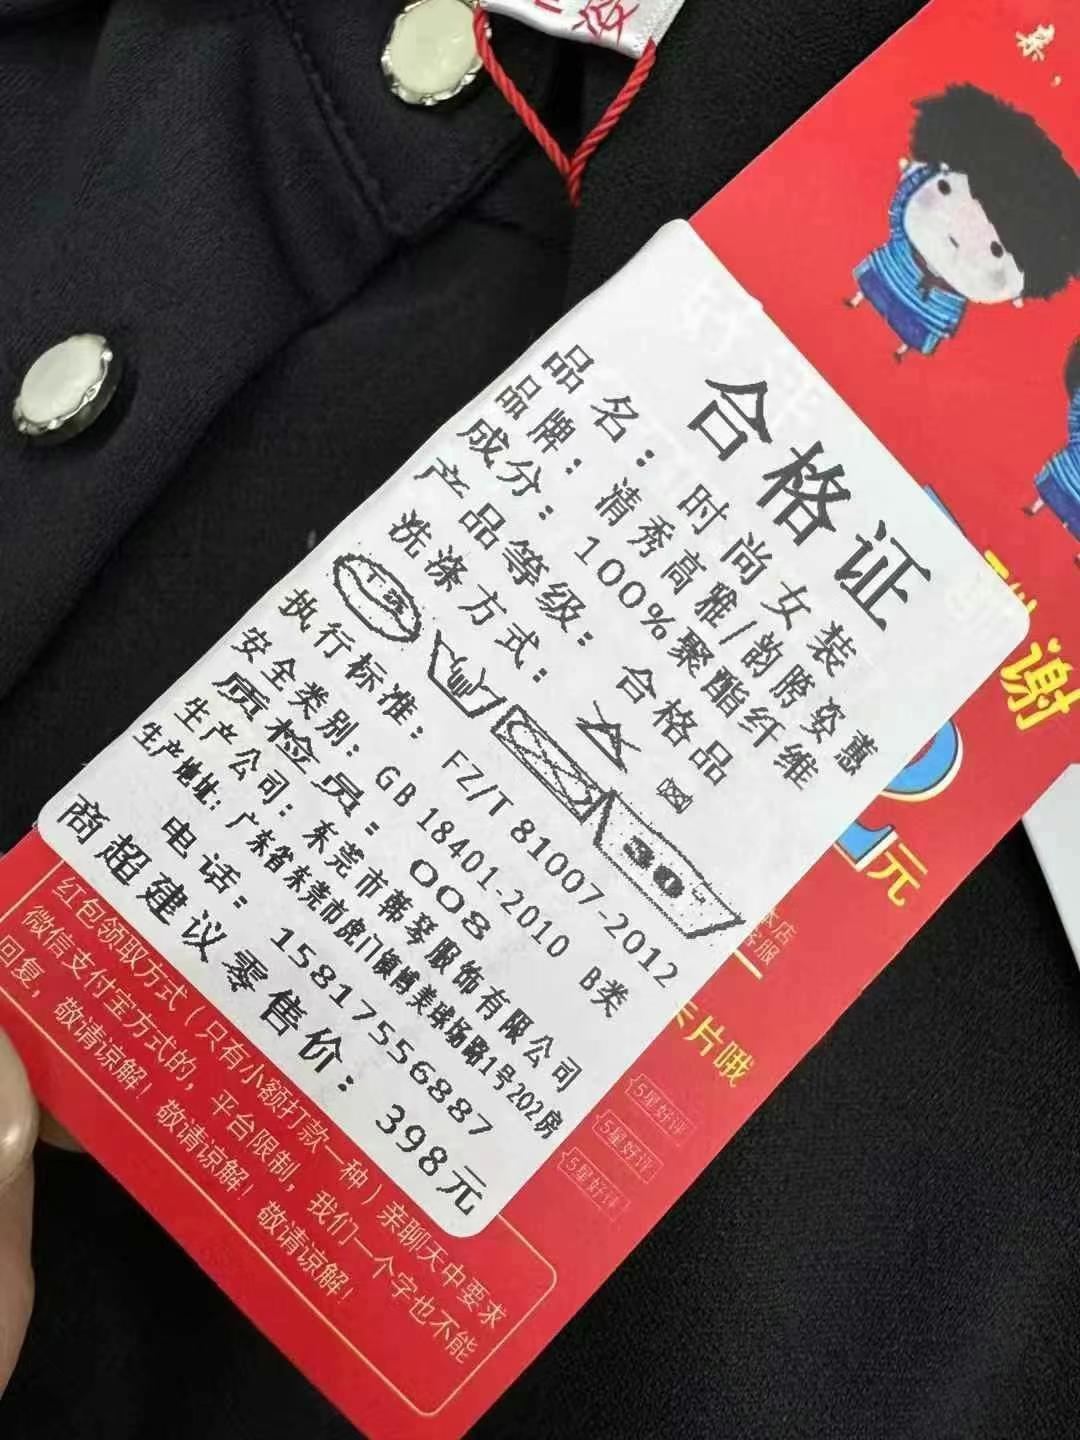 合格证
品名：时尚女装
品牌：清秀高雅/韵胯姿惠
成分：100%聚酯纤维
产品等级：合格品
洗涤方式：
干洗
30
执行标准：FZ/T 81007-2012
安全类别：GB 18401-2010 B类
质检员：008
生产公司：东莞市韩琴服饰有限公司
生产地址：广东省东莞市虎门镇博美球场路1号202房
电话：15817556887
商超建议零售价：398元
谢
元
本店
客服
卡片哦
5星好评
5星好评
5星好评
红包领取方式（只有小额打款一种）亲聊天中要求
微信支付宝方式的，平台限制，我们一个字也不能
回复，敬请谅解！敬请谅解！敬请谅解！